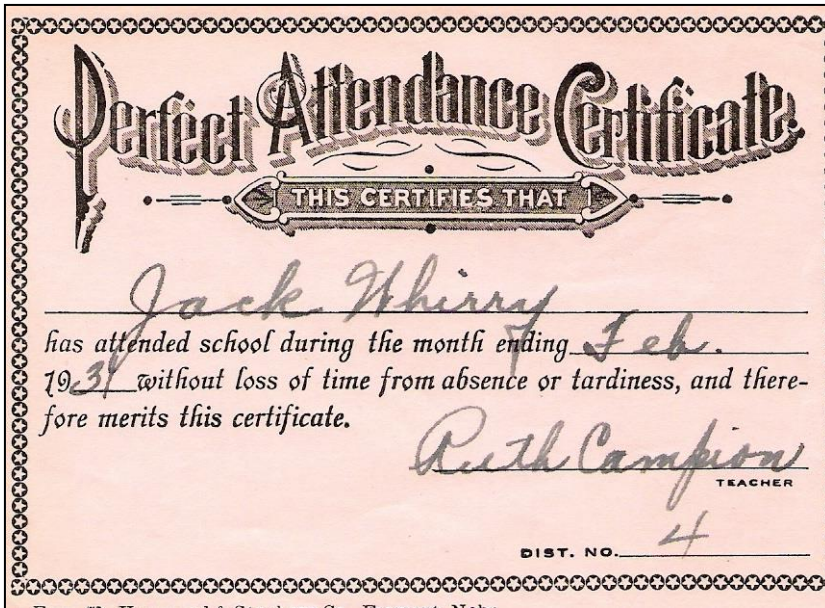 Perfect Attendance Certificate.
THIS CERTIFIES THAT
Jack Whirry
has attended school during the month ending Feb.
1931 without loss of time from absence or tardiness, and there-
fore merits this certificate.
Ruth Campion
TEACHER
DIST. NO. 4